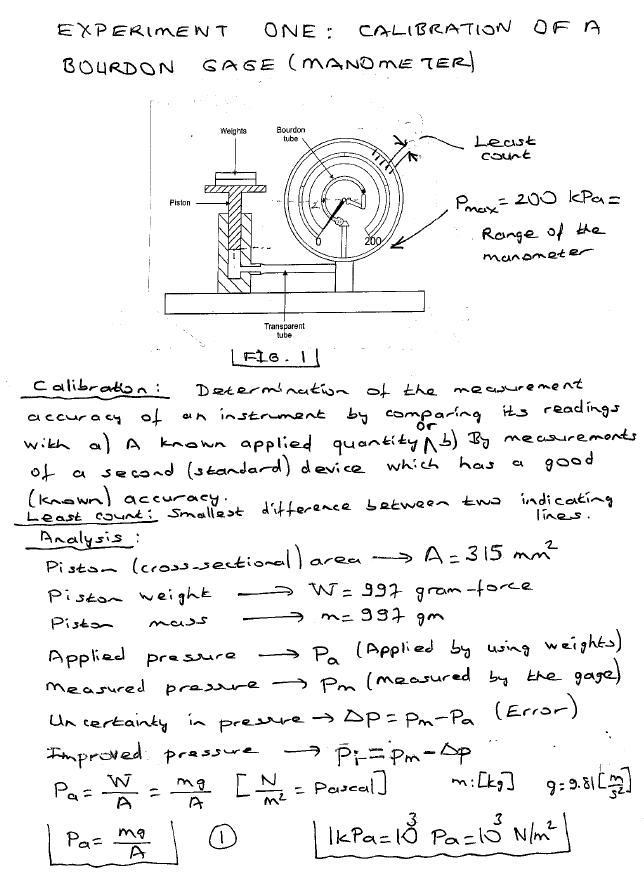 EXPERIMENT ONE: CALIBRATION OF A
BOURDON GAGE (MANOMETER)
Weights
Bourdon
tube
Least
count
Piston
Pmax = 200 kPa =
Range of the
manometer
0
200
Transparent
tube
FIG. 1
Calibration: Determination of the measurement
accuracy of an instrument by comparing its readings
with a) A known applied quantity or b) By measurements
of a second (standard) device which has a good
(known) accuracy.
Least count: Smallest difference between two indicating
lines.
Analysis:
Piston (cross-sectional) area → A = 315 mm²
Piston weight → W = 997 gram-force
Piston mass → m = 997 gm
Applied pressure → Pa (Applied by using weights)
Measured pressure → Pm (measured by the gage)
Uncertainty in pressure → Δp = Pm - Pa (Error)
Improved pressure → Pi = Pm - Δp
Pa = W/A = mg/A [N/m² = Pascal] m:[kg] g=9.81[m/s²]
Pa = mg/A ① 1kPa = 10³ Pa = 10³ N/m²